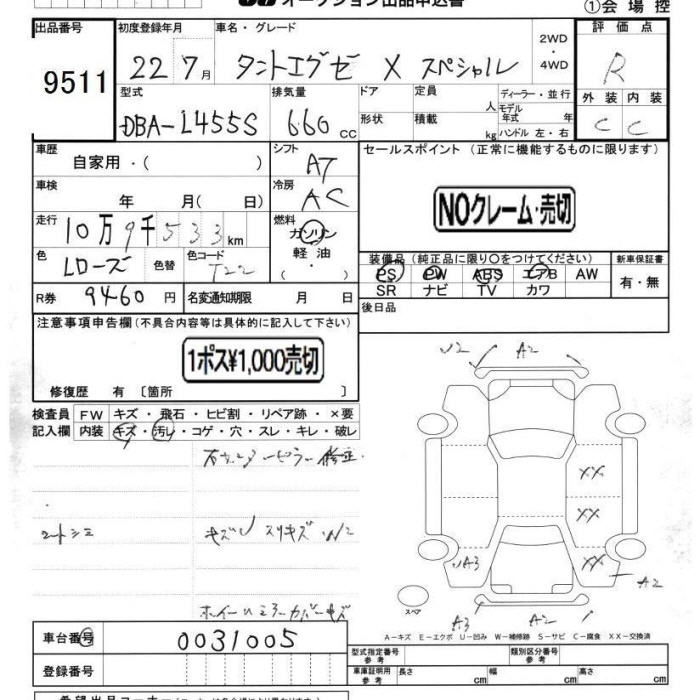 オークション出品申込書
①会場控
出品番号
9511
初度登録年月
22 7月
車名・グレード
タントエグゼ X スペシャル
2WD
・
4WD
評価点
R
外装 内装
C C
型式
DBA-L455S
排気量
660 CC
ドア
形状
定員
人
積載
kg
ディーラー・並行
モデル
年式 年
ハンドル 左・右
車歴
自家用・( )
シフト
AT
セールスポイント (正常に機能するものに限ります)
NOクレーム・売切
車検
年 月( 日)
冷房
AC
走行
10万9千533km
燃料
ガソリン
軽油
( ・ )
色
Lローズ
色替
色コード
T22
装備品 (純正品に限り○をつけてください)
PS PW ABS エアB AW
SR ナビ TV カワ
新車保証書
有・無
R券 9460円
名変通知期限 月 日
後日品
注意事項申告欄(不具合内容等は具体的に記入して下さい)
1ポス¥1,000売切
修復歴 有 〔箇所 〕
検査員
記入欄
FW キズ・飛石・ヒビ割・リペア跡・×要
内装 キズ・汚レ・コゲ・穴・スレ・キレ・破レ
ピラー 修正
シミ
キズ スリキズ W2
キズ
A2
XX
XX
A3
XX
A2
スペア
A3
A2
A-キズ E-エクボ U-凹み W-補修跡 S-サビ C-腐食 XX-交換済
車台番号
0031005
登録番号
型式指定番号
参考
類別区分番号
参考
車庫証明用
参考
長さ cm
幅 cm
高さ cm
希望出品コーナー